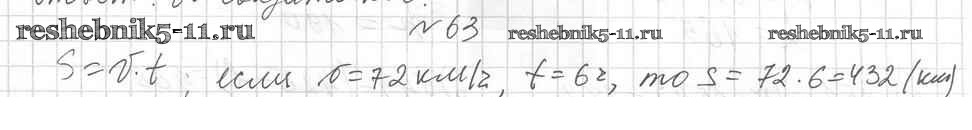 reshebnik5-11.ru №63 reshebnik5-11.ru reshebnik5-11.ru
S=v·t; если v=72км/ч, t=6ч, то s= 72·6=432 (км)